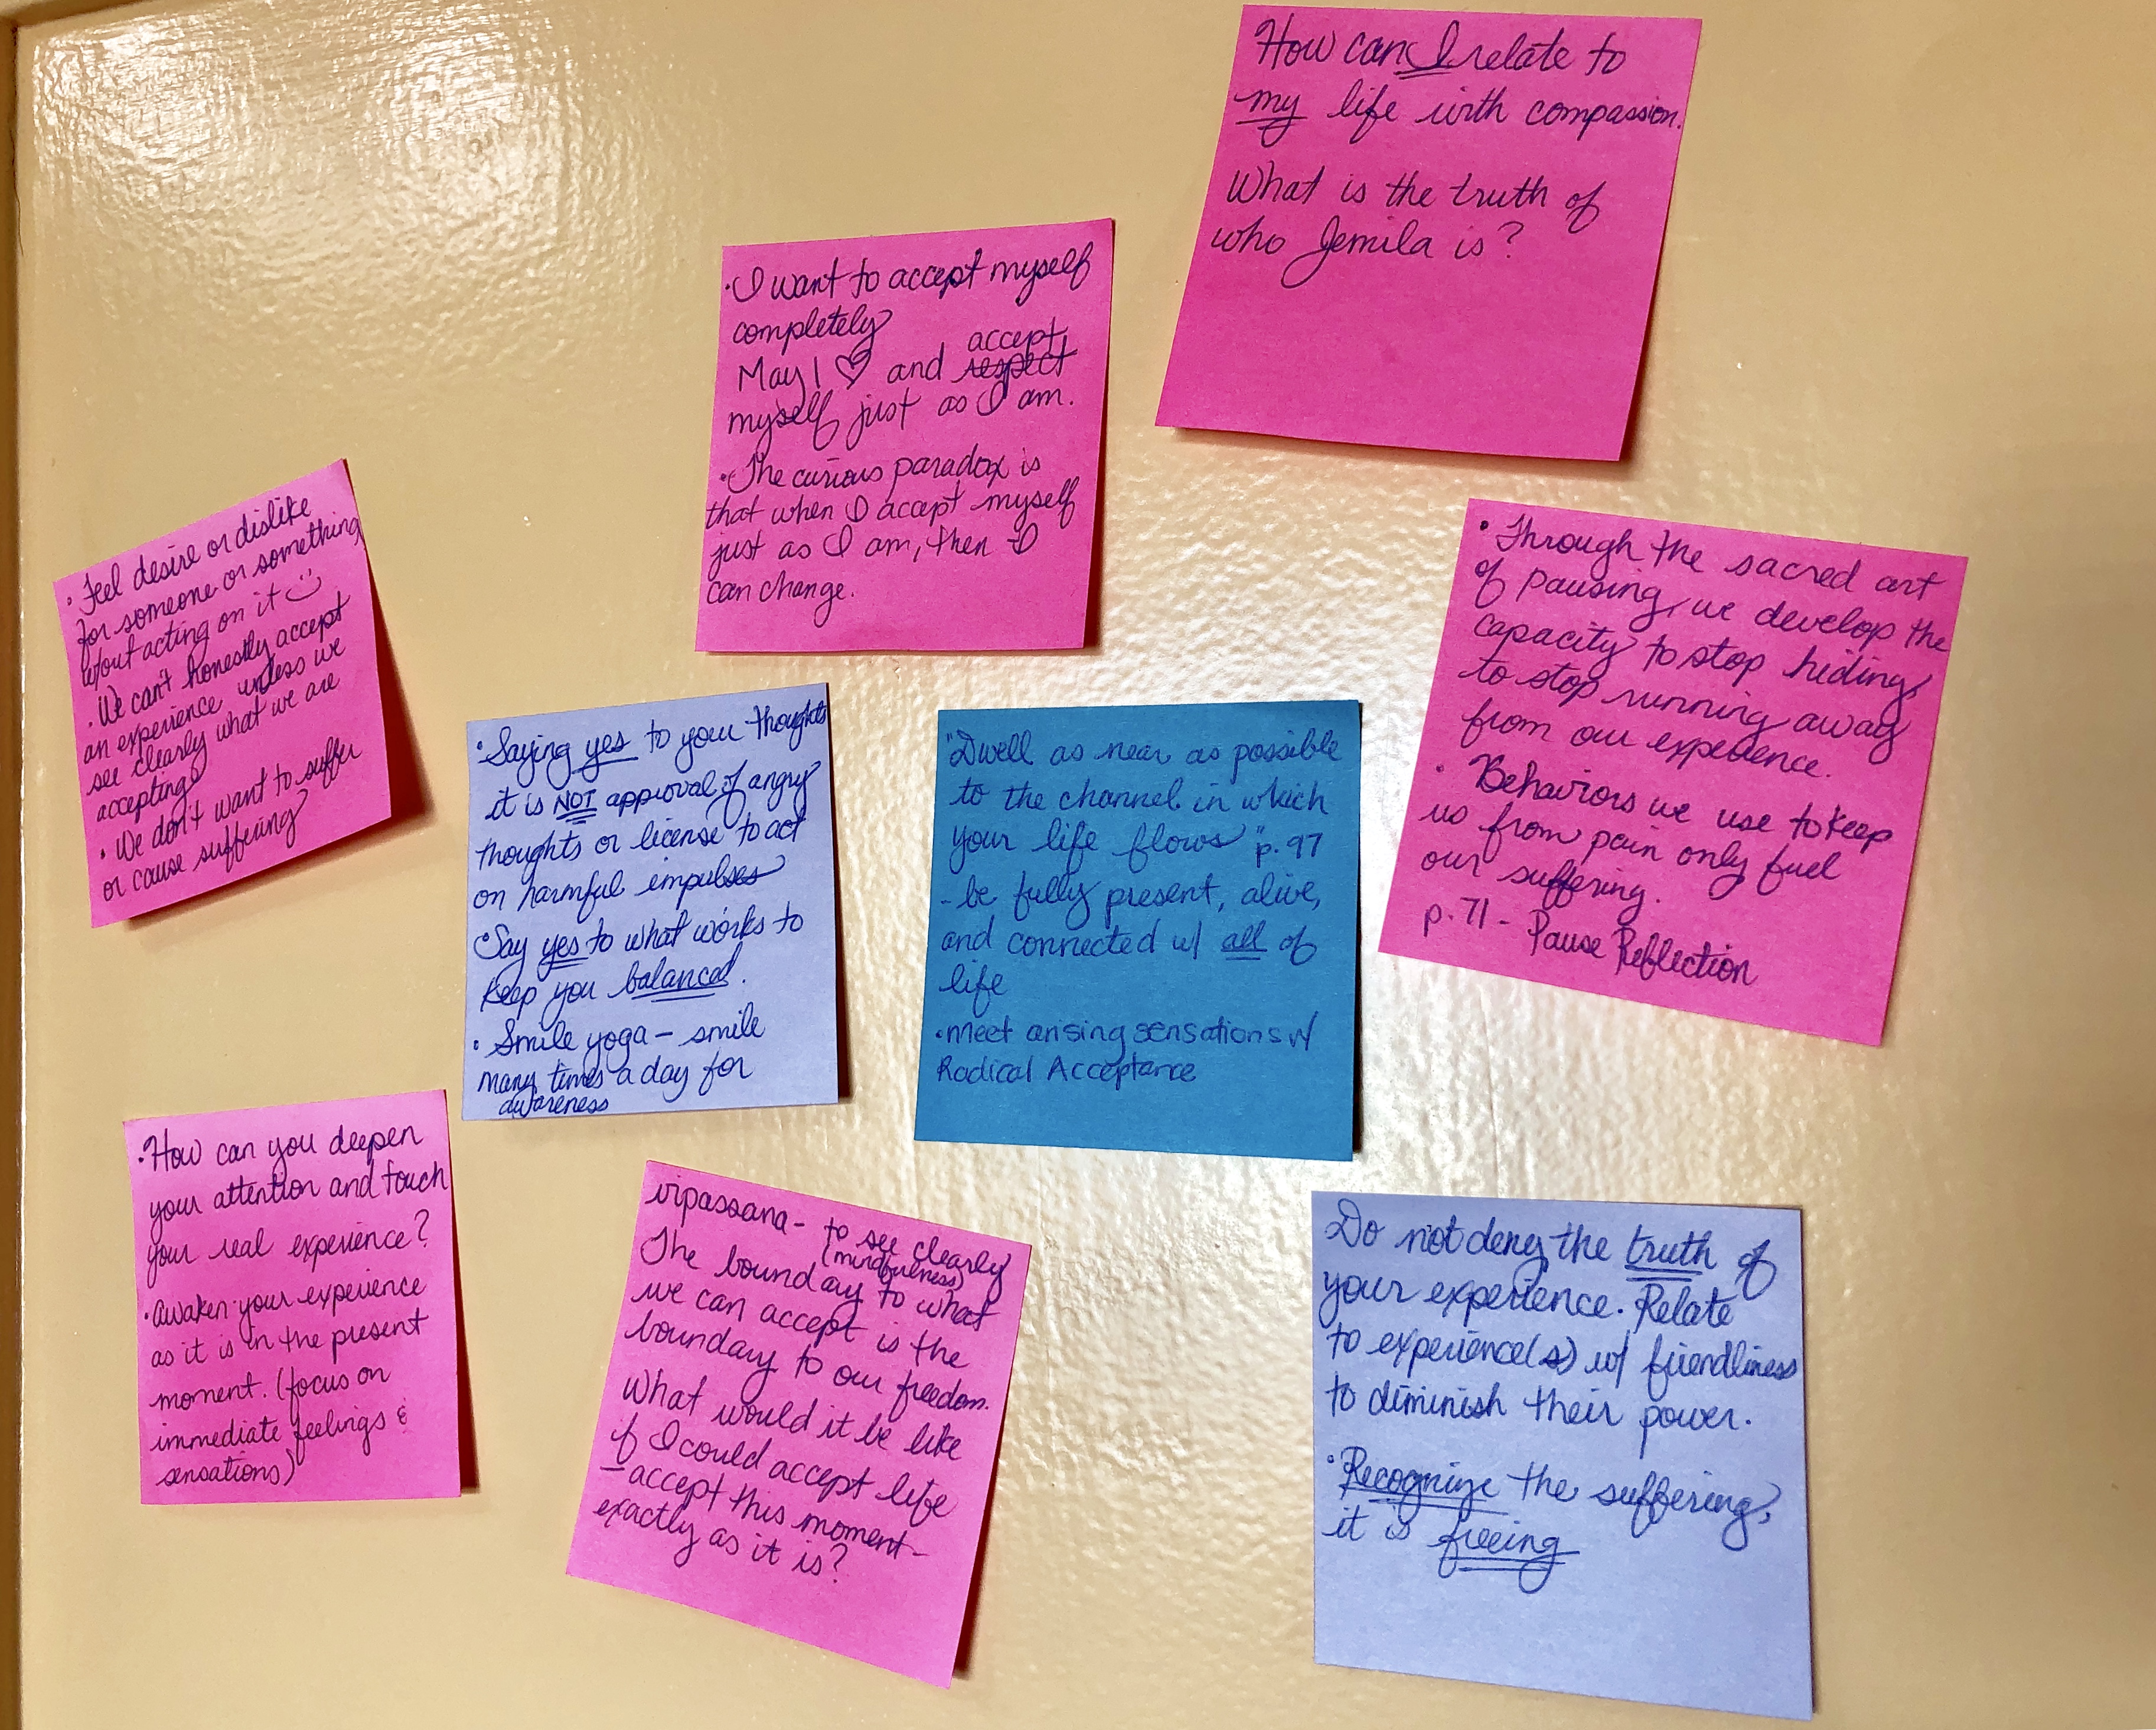 How can I relate to
my life with compassion.
What is the truth of
who Jemila is?
• I want to accept myself
completely
accept
May I ♡ and respect
myself just as I am.
• The curious paradox is
that when I accept myself
just as I am, then I
can change.
• Feel desire or dislike
for someone or something
w/out acting on it ☺
• We can't honestly accept
an experience unless we
see clearly what we are
accepting
• We don't want to suffer
or cause suffering
• Saying yes to your thoughts
it is NOT approval of angry
thoughts or license to act
on harmful impulses
• Say yes to what works to
keep you balanced.
• Smile yoga - smile
many times a day for
awareness
"Dwell as near as possible
to the channel in which
your life flows" p. 97
- be fully present, alive,
and connected w/ all of
life
• meet arising sensations w/
Radical Acceptance
• Through the sacred art
of pausing, we develop the
capacity to stop hiding,
to stop running away
from our experience.
• Behaviors we use to keep
us from pain only fuel
our suffering.
p. 71 - Pause Reflection
• How can you deepen
your attention and touch
your real experience?
• Awaken your experience
as it is in the present
moment. (focus on
immediate feelings &
sensations)
vipassana - to see clearly
(mindfulness)
The boundary to what
we can accept is the
boundary to our freedom.
What would it be like
if I could accept life
- accept this moment -
exactly as it is?
Do not deny the truth of
your experience. Relate
to experience(s) w/ friendliness
to diminish their power.
• Recognize the suffering,
it is freeing